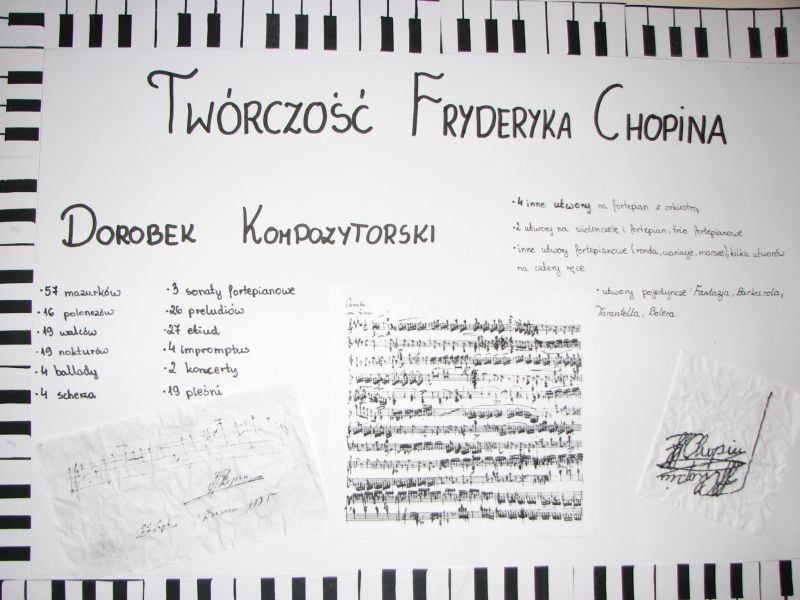 TWÓRCZOŚĆ FRYDERYKA CHOPINA
DOROBEK KOMPOZYTORSKI
• 57 mazurków
• 16 polonezów
• 19 walców
• 19 nokturów
• 4 ballady
• 4 scherza
• 3 sonaty fortepianowe
• 26 preludiów
• 27 etiud
• 4 impromptus
• 2 koncerty
• 19 pieśni
• 4 inne utwory na fortepian z orkiestrą
• 2 utwory na wiolonczelę i fortepian, trio fortepianowe
• inne utwory fortepianowe (ronda, wariacje, marsze), kilka utworów
na cztery ręce
• utwory pojedyncze: Fantazja, Barkarola,
Tarantella, Bolera
Chopin